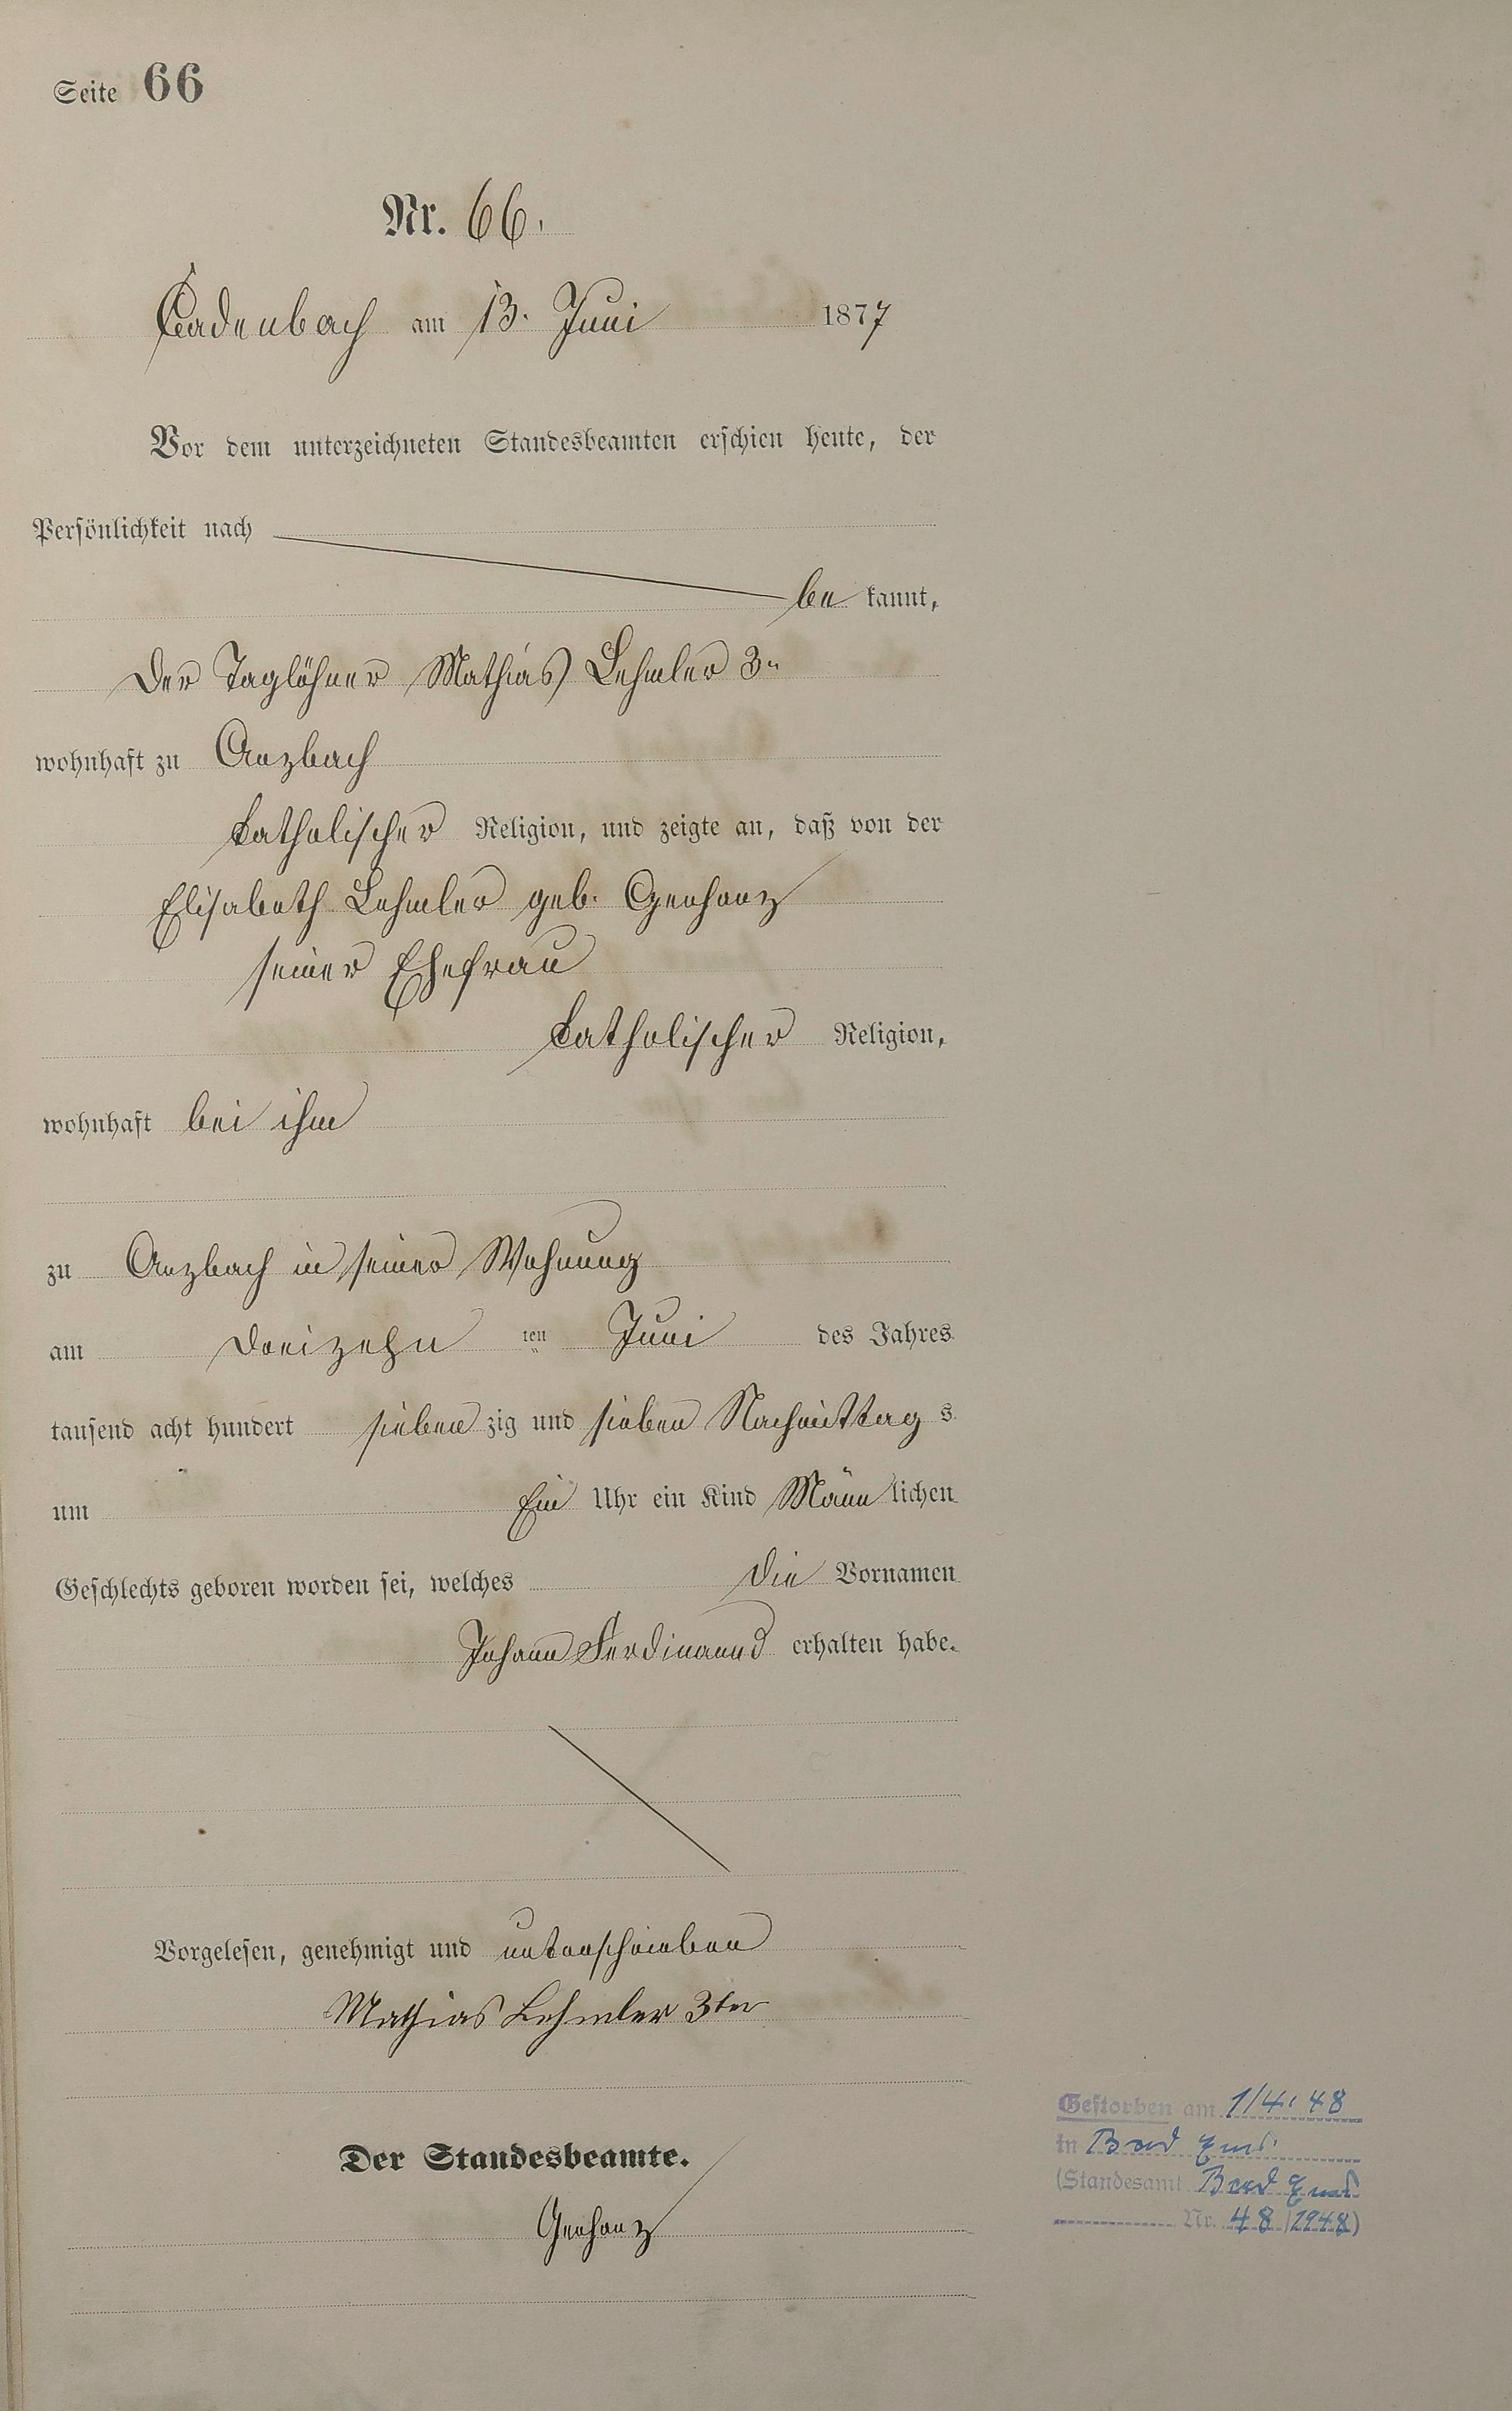 Seite 66
Nr. 66.
Cadenbach am 13. Juni 1877
Vor dem unterzeichneten Standesbeamten erschien heute, der
Persönlichkeit nach
be kannt,
der Taglöhner Mathias Lehmler 3r
wohnhaft zu Arzbach
katholischer Religion, und zeigte an, daß von der
Elisabeth Lehmler geb. Gerharz
seiner Ehefrau
katholischer Religion,
wohnhaft bei ihm
zu Arzbach in seiner Wohnung
am dreizehn ten Juni des Jahres
tausend acht hundert sieben zig und sieben Nachmittag s
um Ein Uhr ein Kind Männ lichen
Geschlechts geboren worden sei, welches die Vornamen
Johann Ferdinannd erhalten habe.
Vorgelesen, genehmigt und unterschrieben
Mathias Lehmler 3ter
Der Standesbeamte.
Gerharz
Gestorben am 1/4. 48
in Bad Ems
(Standesamt Bad Ems
Nr. 48/1948)